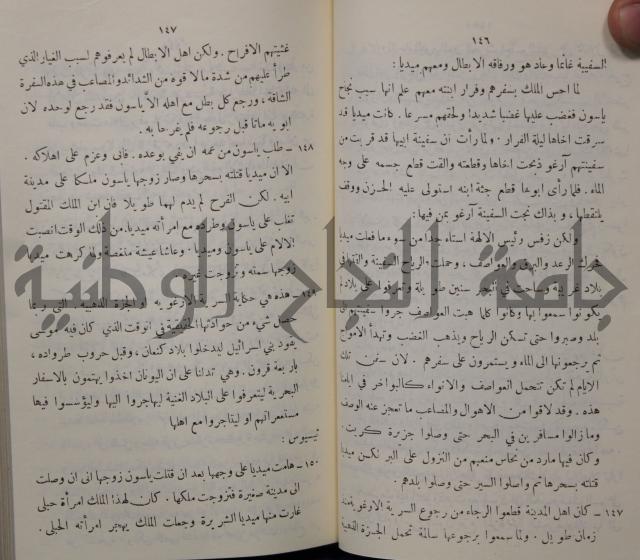 ١٤٦
السفينة غانما وعاد هو ورفاقه الابطال ومعهم ميديا :
لما احس الملك بسفرهم وفرار ابنته معهم علم انها سبب نجاح
ياسون فغضب عليها غضبا شديدا ولحقهم مسرعا . كانت ميديا قد
سرقت اخاها ليلة الفرار . ولما رأت ان سفينة ابيها قد قربت من
سفينتهم آرغو ذبحت اخاها وقطعته والقت قطع جسمه على وجه
الماء . فلما رأى ابوها قطع جثة ابنه استولى عليه الحزن ووقف
يلتقطها ، وبذلك نجت السفينة آرغو بمن فيها :
ولكن زفس رئيس الالهة استاء جدا من سوء ما فعلت ميديا
الرعد والبرق والعواصف ، وحملت الرياح السفينة
بلاد غريبة في البحر سنين طويلة على بلاد لم
يكونوا سمعوا بها وكانوا كلما هبت العواصف جروا سفينتهم الى
بلد وصبروا حتى تسكن الرياح ويذهب الغضب وتهدأ الامواج
ثم يرجعونها الى الماء ويستمرون على سفرهم . لان سفن تلك
الايام لم تكن تتحمل العواصف والانواء كالبواخر في ايامنا
هذه . وقد لاقوا من الاهوال والمصاعب ما تعجز عنه الوصف
وما زالوا مسافرين في البحر حتى وصلوا جزيرة كريت .
وكان فيها مارد من نحاس منعهم من النزول على البر لكن ميديا
قتلته بسحرها ثم واصلوا السير حتى وصلوا بلدهم .
١٤٧ – كان اهل المدينة قطعوا الرجاء من رجوع السرية الارغوية منذ
زمان طويل . ولما سمعوا برجوعها سالمة تحمل الجزة الذهبية
١٤٧
غشيتهم الافراح . ولكن اهل الابطال لم يعرفوهم لسبب الغيار الذي
طرأ عليهم من شدة ما لاقوه من الشدائد والمصاعب في هذه السفرة
الشاقة ، ورجع كل بطل مع اهله الا ياسون فقد رجع لوحده لان
ابويه ماتا قبل رجوعه فلم يفرحا به .
١٤٨ – طلب ياسون من عمه ان يفي بوعده . فابى وعزم على اهلاكه .
الا ان ميديا قتلته بسحرها وصار زوجها ياسون ملكا على مدينة
ابيه . لكن الفرح لم يدم لهما طويلا فان ابن الملك المقتول
تغلب على ياسون وطرده مع امرأته ميديا . من ذلك الوقت انصبت
الآلام على ياسون وميديا . وعاشا عيشة منغصة ولم كرهت ميديا
زوجها سمته وتزوجت غيره .
١٤٩ – هذه هي حكاية السرية الارغوية او الجزة الذهبية التي ربما
حصل شيء من حوادثها الحقيقية في الوقت الذي كان فيه موسى
يقود بني اسرائيل ليدخلوا بلاد كنعان ، وقبل حروب طرواده ،
باربعة قرون . وهي تدلنا على ان اليونان اخذوا يهتمون بالاسفار
البحرية ليتعرفوا على البلاد الغنية ليهاجروا اليها وليؤسسوا فيها
مستعمراتهم او ليتاجروا مع اهلها
تيسيوس :
١٥٠ – هامت ميديا على وجهها بعد ان قتلت ياسون زوجها الى ان وصلت
الى مدينة صغيرة فتزوجت ملكها . كان لهذا الملك امرأة حبلى
غارت منها ميديا الشريرة وجعلت الملك يهجر امرأته الحبلى .
جامعة النجاح الوطنية